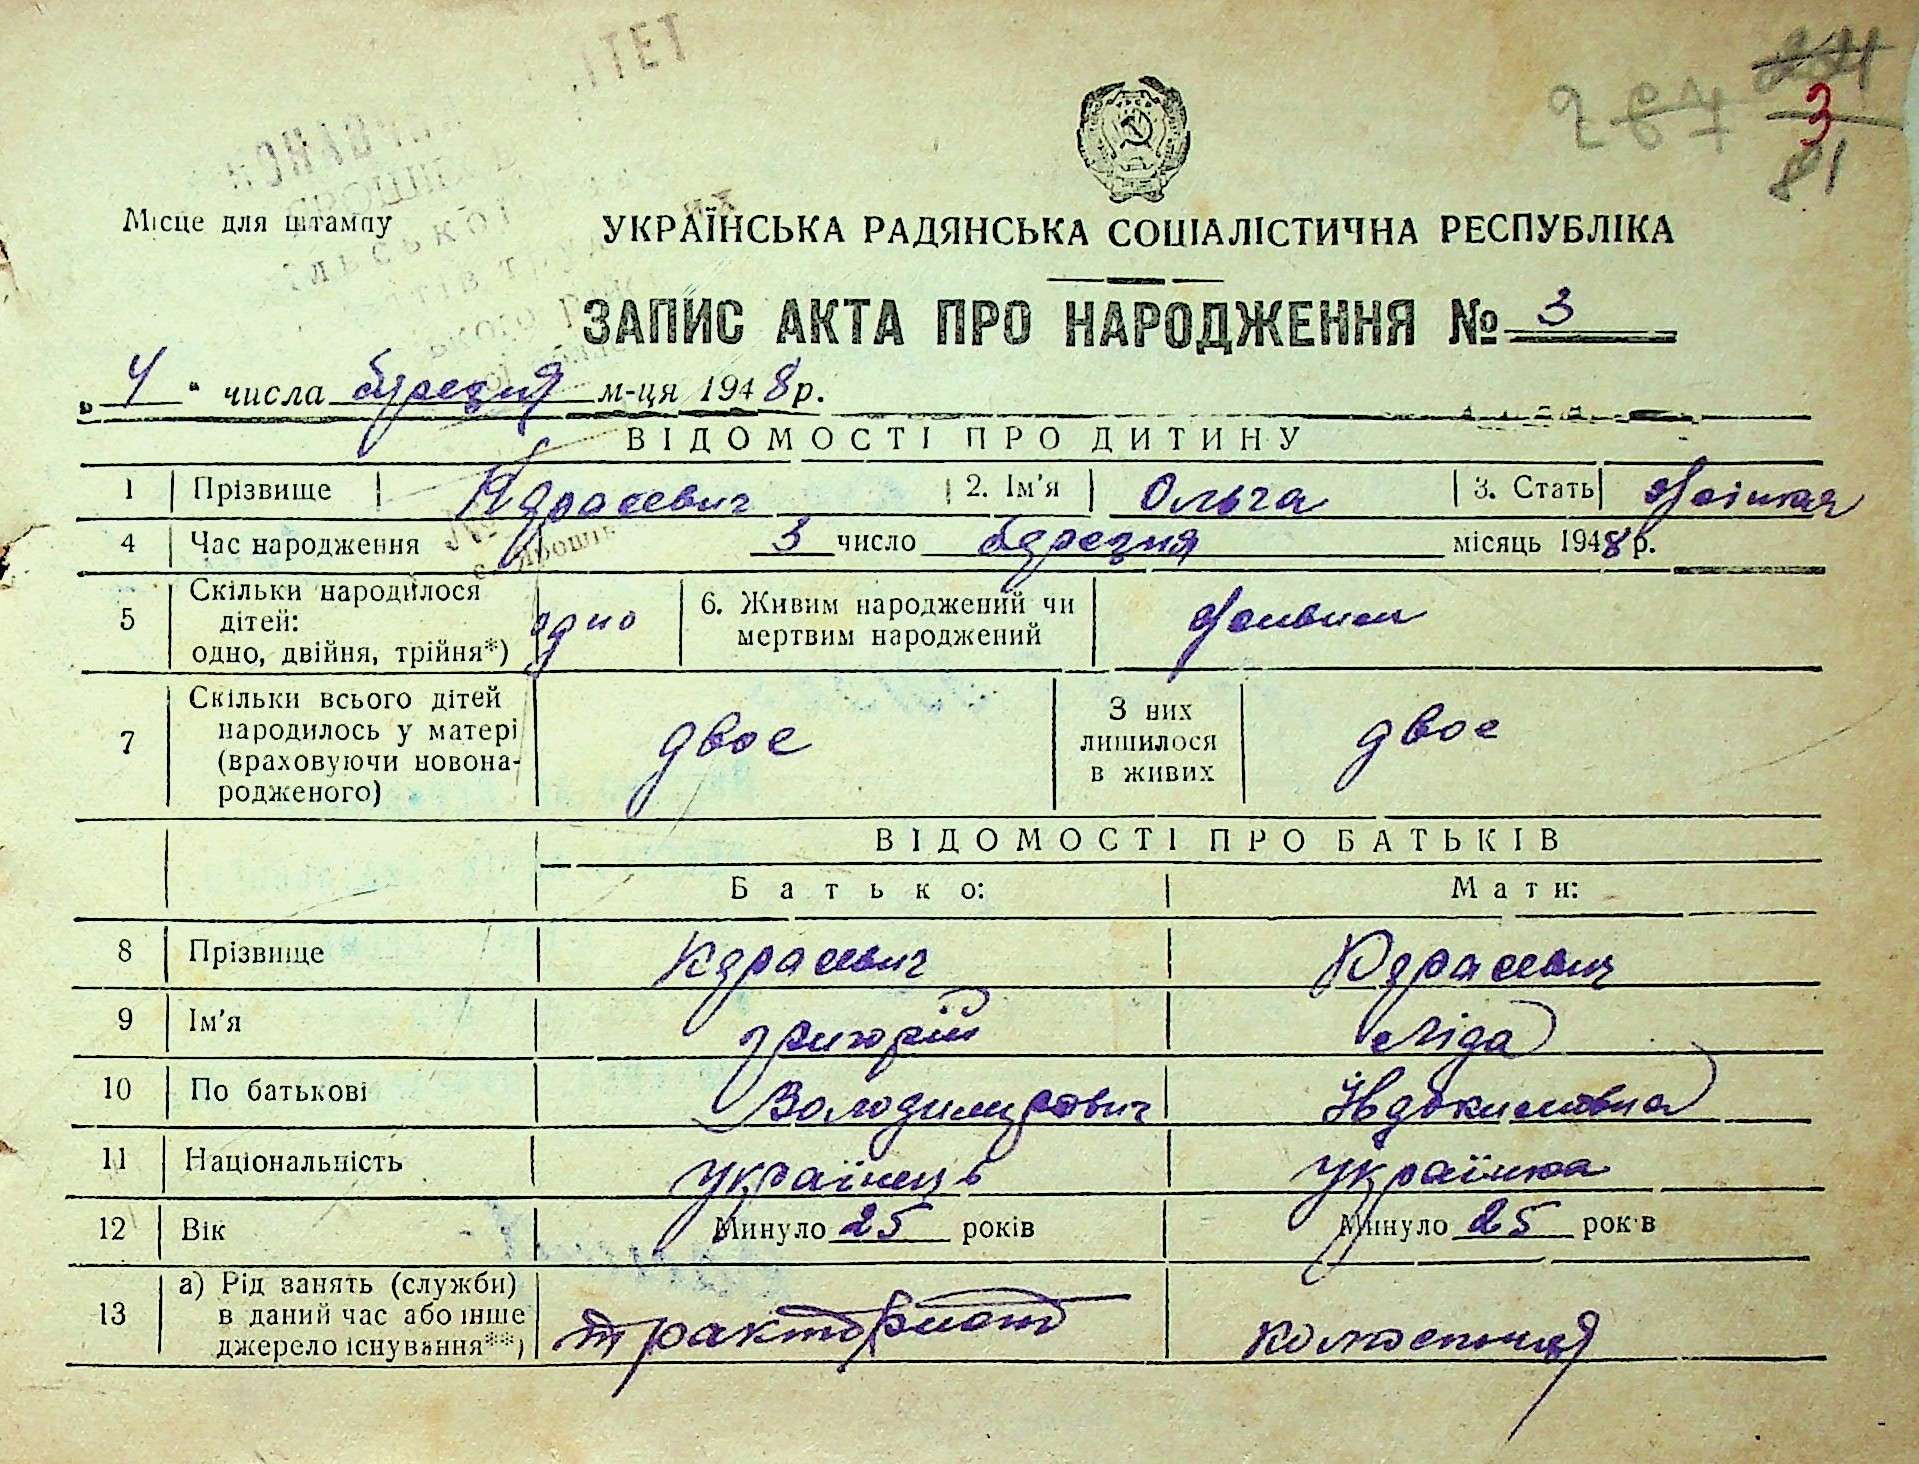 287 224
3
81
Місце для штампу
УКРАЇНСЬКА РАДЯНСЬКА СОЦІАЛІСТИЧНА РЕСПУБЛІКА
ЗАПИС АКТА ПРО НАРОДЖЕННЯ № 3
„ 4 " числа березня м-ця 1948 р.
ВІДОМОСТІ ПРО ДИТИНУ
1 Прізвище Карасевич 2. Ім'я Ольга 3. Стать жіноча
4 Час народження 3 число березня місяць 1948 р.
5 Скільки народилося дітей: одно, двійня, трійня*) одно 6. Живим народжений чи мертвим народжений живим
7 Скільки всього дітей народилось у матері (враховуючи новонародженого) двоє З них лишилося в живих двоє
ВІДОМОСТІ ПРО БАТЬКІВ
Батько: Мати:
8 Прізвище Карасевич Карасевич
9 Ім'я Григорій Ліда
10 По батькові Володимирович Овдокимовна
11 Національність Українець Українка
12 Вік Минуло 25 років Минуло 25 років
13 а) Рід занять (служби) в даний час або інше джерело існування**) тракторист колгоспниця